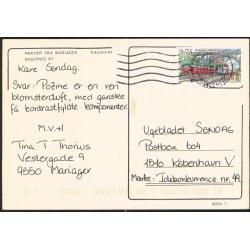 PARTIER FRA MARIAGER DANMARK
MODERNES BY
Kære Søndag.
Svar: Poème er en ren
blomsterduft, med ganske
få kontrastfyldte komponenter.
M.v.H
Tina T Thorius
Vestergade 9
9550 Mariager
Ugebladet SØNDAG
Postbox 604
1510 København V
Mærke: Idékonkurrence nr. 49.